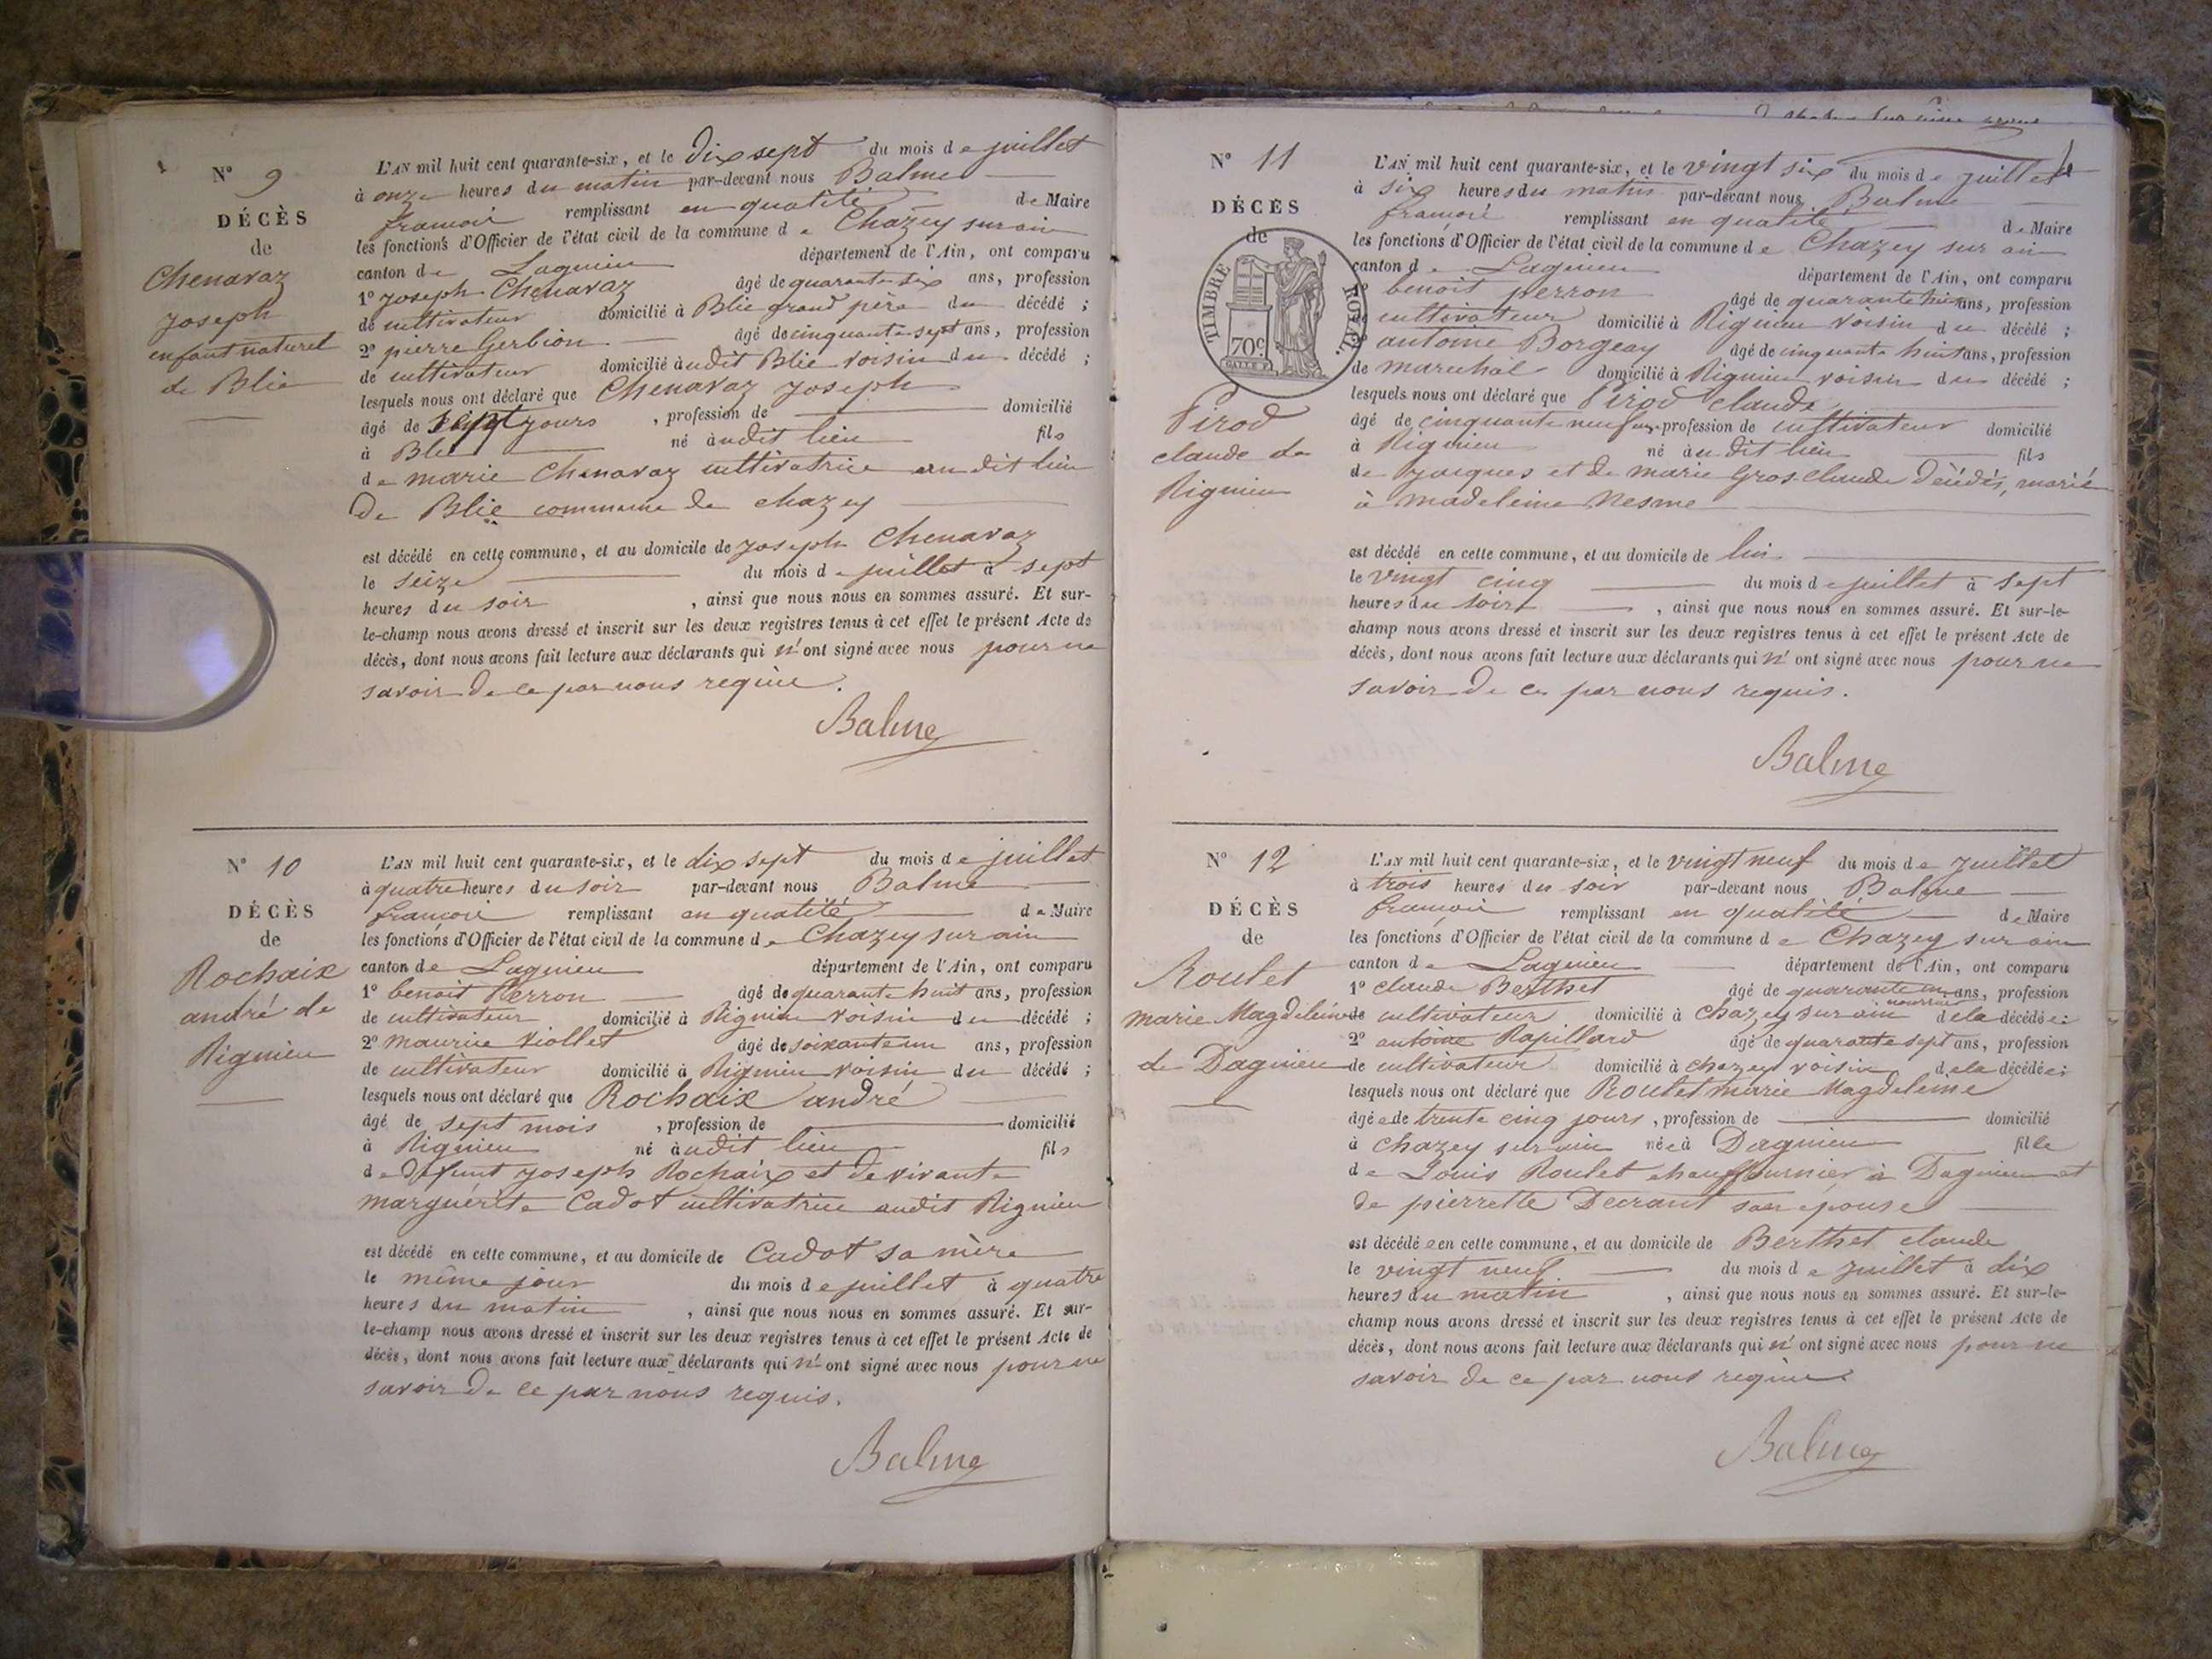 N° 9
DÉCÈS
de
Chenavaz
joseph
enfant naturel
de Blie
L'AN mil huit cent quarante-six, et le dix sept du mois de juillet
à onze heures du matin par-devant nous Balme
francois remplissant en qualité de Maire
les fonctions d'Officier de l'état civil de la commune de Chazey sur ain
canton de Lagnieu département de l'Ain, ont comparu
1° joseph Chenavaz âgé de quarante six ans, profession
de cultivateur domicilié à Blie grand père du décédé ;
2° pierre Gerbion âgé de cinquante sept ans, profession
de cultivateur domicilié àudit Blie voisin du décédé ;
lesquels nous ont déclaré que Chenavaz joseph
âgé de sept jours , profession de domicilié
à Blie né àudit lieu fils
de marie Chenavaz cultivatrice au dit lieu
de Blie commune de chazey
est décédé en cette commune, et au domicile de joseph Chenavaz
le seize du mois de juillet à sept
heures du soir , ainsi que nous nous en sommes assuré. Et sur-
le-champ nous avons dressé et inscrit sur les deux registres tenus à cet effet le présent Acte de
décès, dont nous avons fait lecture aux déclarants qui n'ont signé avec nous pour ne
savoir de ce par nous requie.
Balme
N° 10
DÉCÈS
de
Rochaix
andré de
Rignieu
L'AN mil huit cent quarante-six, et le dix sept du mois de juillet
à quatre heures du soir par-devant nous Balme
francois remplissant en qualité de Maire
les fonctions d'Officier de l'état civil de la commune de Chazey sur ain
canton de Lagnieu département de l'Ain, ont comparu
1° benoit Perron âgé de quarante huit ans, profession
de cultivateur domicilié à Rignieu voisin du décédé ;
2° maurice Viollet âgé de soixante un ans, profession
de cultivateur domicilié à Rignieu voisin du décédé ;
lesquels nous ont déclaré que Rochaix andré
âgé de sept mois , profession de domicilié
à Rignieu né àudit lieu fils
de defunt joseph Rochaix et de vivante
marguerite Cadot cultivatrice audit Rignieu
est décédé en cette commune, et au domicile de Cadot sa mère
le même jour du mois de juillet à quatre
heures du matin , ainsi que nous nous en sommes assuré. Et sur-
le-champ nous avons dressé et inscrit sur les deux registres tenus à cet effet le présent Acte de
décès, dont nous avons fait lecture aux déclarants qui n'ont signé avec nous pour ne
savoir de ce par nous requis.
Balme
N° 11
DÉCÈS
de
TIMBRE ROYAL.
70c
Pirod
claude de
Rignieu
L'AN mil huit cent quarante-six, et le vingt six du mois de juillet
à six heures du matin par-devant nous Balme
francois remplissant en qualité de Maire
les fonctions d'Officier de l'état civil de la commune de Chazey sur ain
canton de Lagnieu département de l'Ain, ont comparu
1° benoit perron âgé de quarante huit ans, profession
de cultivateur domicilié à Rignieu voisin du décédé ;
2° antoine Borgeay âgé de cinquante huit ans, profession
de marechal domicilié à Rignieu voisin du décédé ;
lesquels nous ont déclaré que Pirod claude
âgé de cinquante neuf ans profession de cultivateur domicilié
à Rignieu né àu dit lieu fils
de jacques et de marie Gros claude décédés, marié
à madeleine Nesme
est décédé en cette commune, et au domicile de lui
le vingt cinq du mois de juillet à sept
heures du soir , ainsi que nous nous en sommes assuré. Et sur-le-
champ nous avons dressé et inscrit sur les deux registres tenus à cet effet le présent Acte de
décès, dont nous avons fait lecture aux déclarants qui n'ont signé avec nous pour ne
savoir de ce par nous requis.
Balme
N° 12
DÉCÈS
de
Roulet
marie Magdeleine
de Dagnieu
L'AN mil huit cent quarante-six, et le vingt neuf du mois de juillet
à trois heures du soir par-devant nous Balme
francois remplissant en qualité de Maire
les fonctions d'Officier de l'état civil de la commune de Chazey sur ain
canton de Lagnieu département de l'Ain, ont comparu
1° claude Berthet âgé de quarante un ans, profession
de cultivateur domicilié à Chazey sur ain nourricier dela décédée ;
2° antoine Rapillard âgé de quarante sept ans, profession
de cultivateur domicilié à chazey voisin dela décédée ;
lesquels nous ont déclaré que Roulet marie Magdeleine
âgée de trente cinq jours , profession de domicilié
à chazey sur ain née à Dagnieu fille
de Louis Roulet chauffournier à Dagnieu et
de pierrette Decrant son épouse
est décédée en cette commune, et au domicile de Berthet claude
le vingt neuf du mois de juillet à dix
heures du matin , ainsi que nous nous en sommes assuré. Et sur-le-
champ nous avons dressé et inscrit sur les deux registres tenus à cet effet le présent Acte de
décès, dont nous avons fait lecture aux déclarants qui n'ont signé avec nous pour ne
savoir de ce par nous requis
Balme